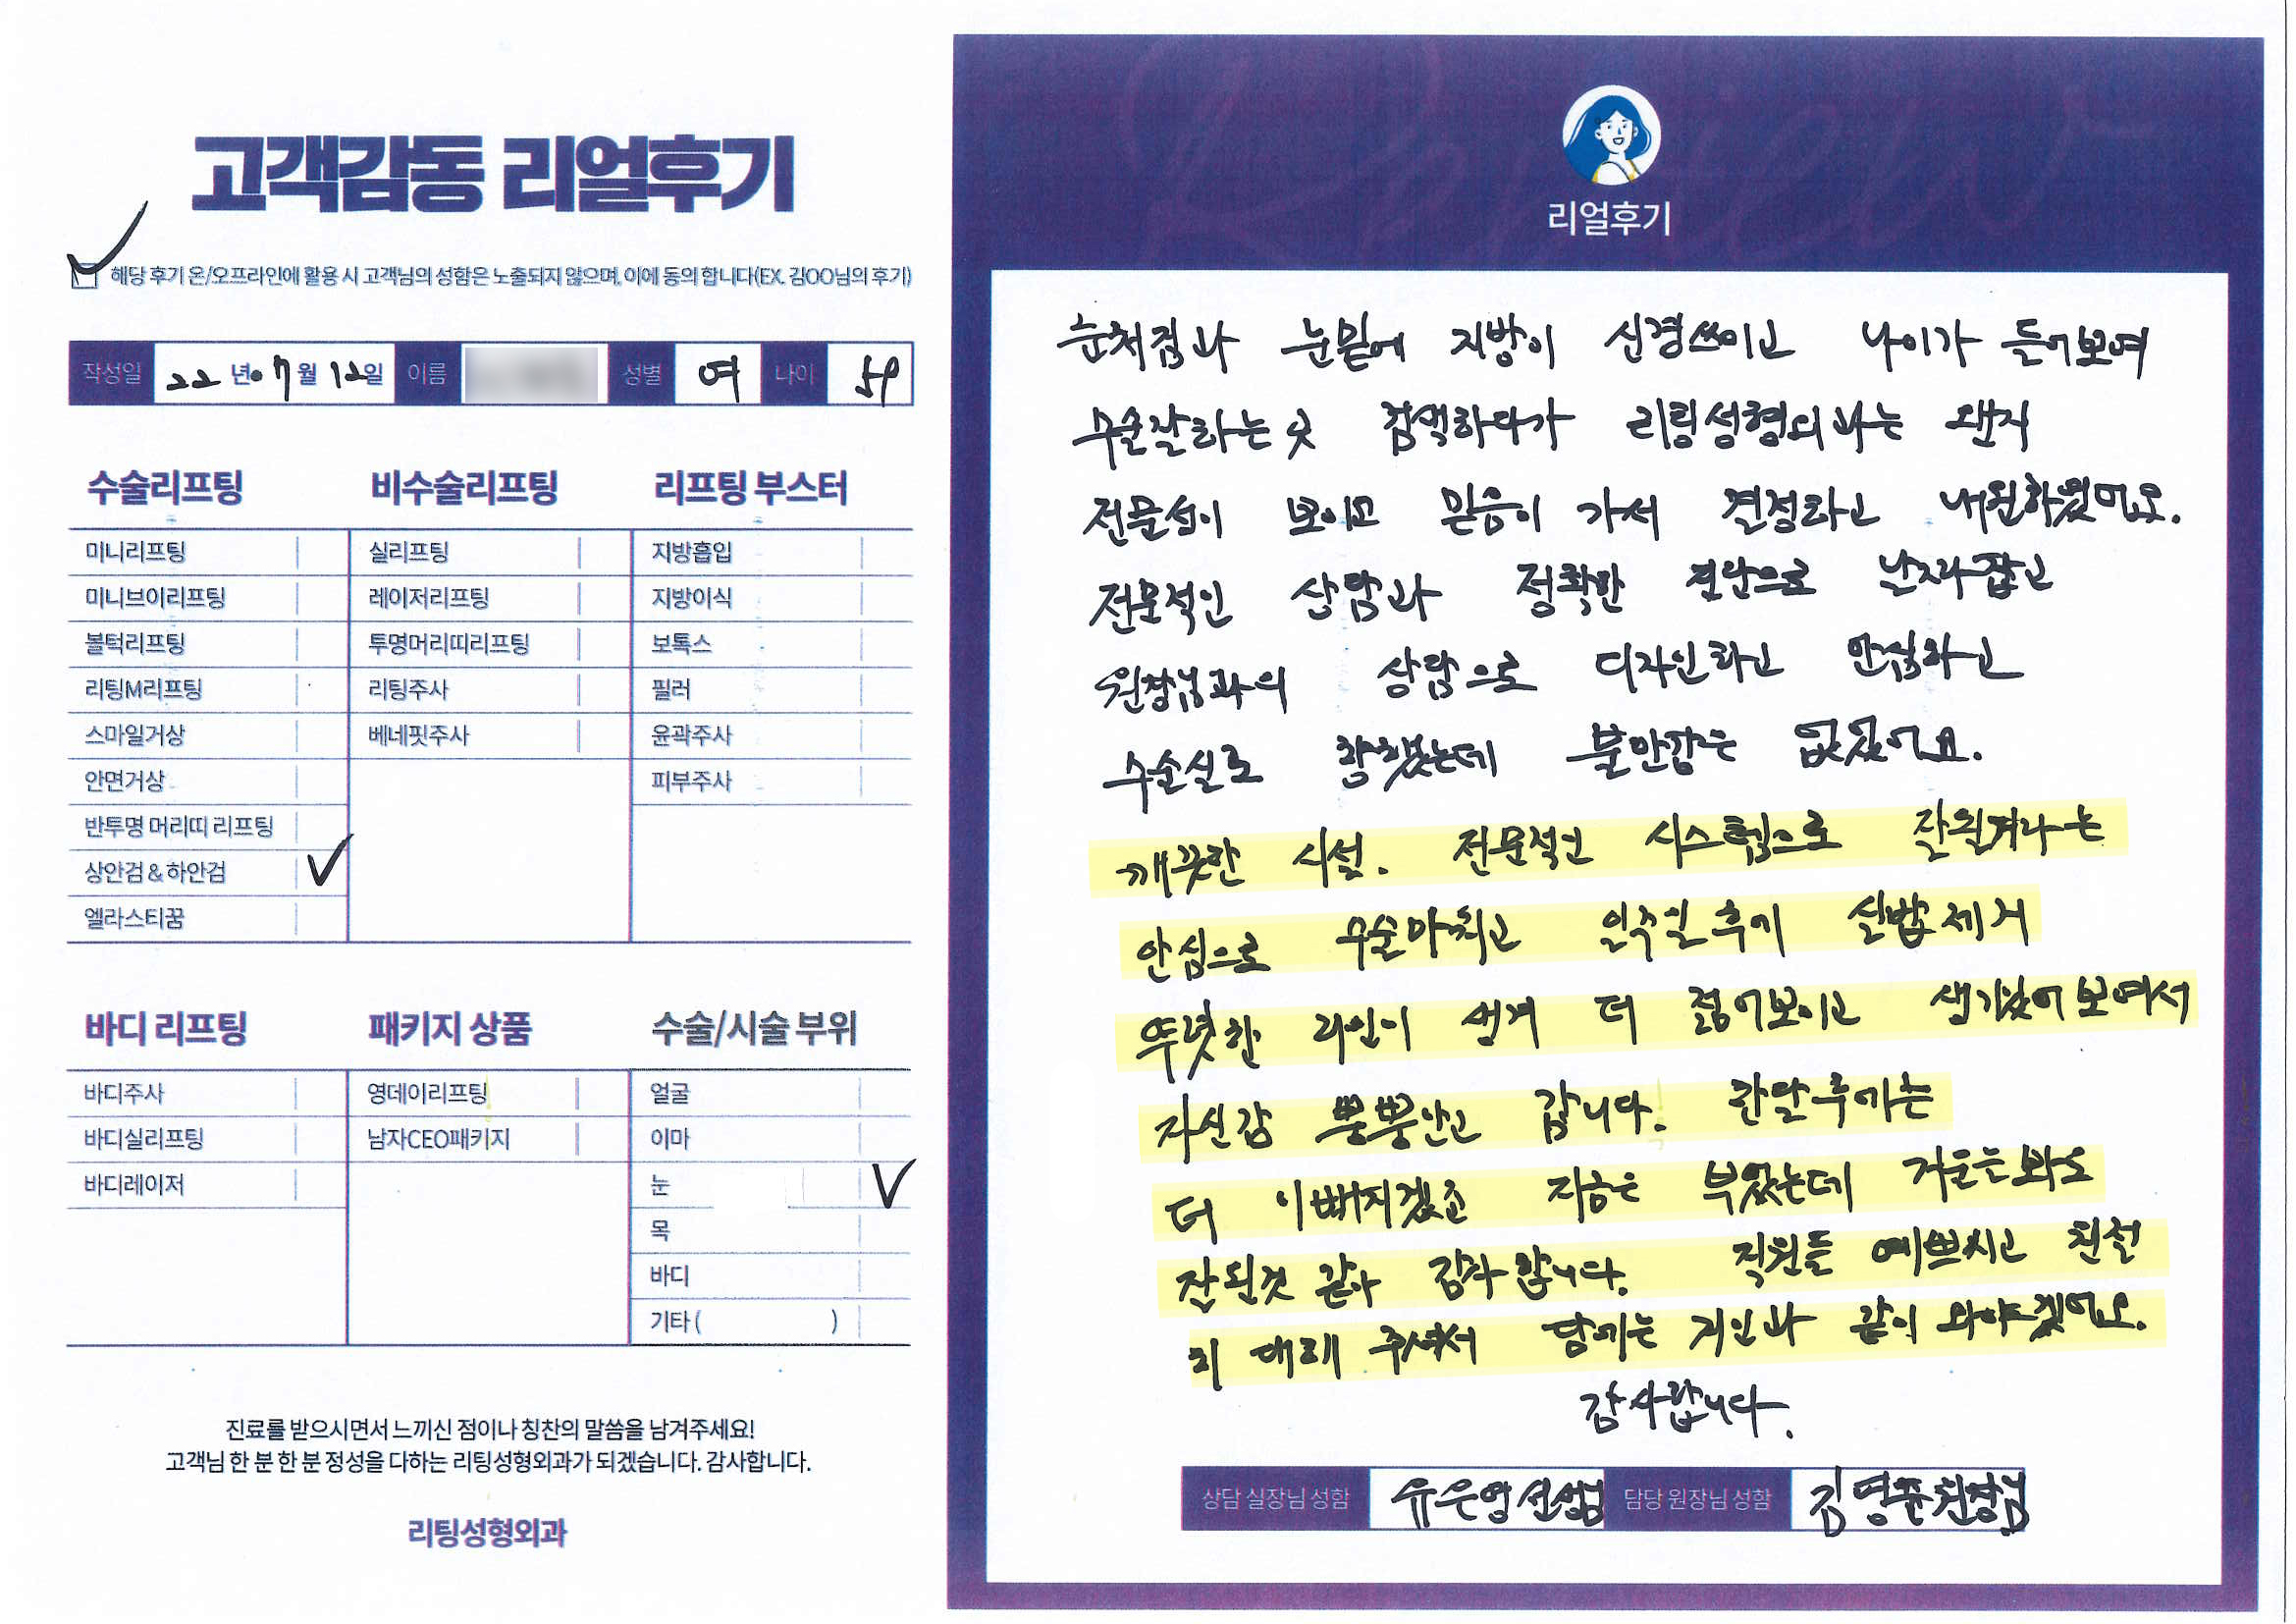 고객감동 리얼후기
해당 후기 온/오프라인에 활용 시 고객님의 성함은 노출되지 않으며, 이에 동의 합니다(EX. 김OO님의 후기)
작성일 22 년 07 월 12일 이름 성별 여 나이 59
수술리프팅
미니리프팅
미니브이리프팅
볼턱리프팅
리팅M리프팅
스마일거상
안면거상
반투명 머리띠 리프팅
상안검 & 하안검 ✓
엘라스티꿈
비수술리프팅
실리프팅
레이저리프팅
투명머리띠리프팅
리팅주사
베네핏주사
리프팅 부스터
지방흡입
지방이식
보톡스
필러
윤곽주사
피부주사
바디 리프팅
바디주사
바디실리프팅
바디레이저
패키지 상품
영데이리프팅
남자CEO패키지
수술/시술 부위
얼굴
이마
눈 ✓
목
바디
기타 ( )
진료를 받으시면서 느끼신 점이나 칭찬의 말씀을 남겨주세요!
고객님 한 분 한 분 정성을 다하는 리팅성형외과가 되겠습니다. 감사합니다.
리팅성형외과
Review
리얼후기
눈처짐과 눈밑에 지방이 신경쓰이고 나이가 들어보여
수술잘하는곳 검색하다가 리팅성형외과는 왠지
전문성이 보이고 믿음이 가서 결정하고 내원하였어요.
전문적인 상담과 정확한 진단으로 날자잡고
원장님과의 상담으로 디자인하고 안심하고
수술실로 향했는데 불안감은 없었어요.
깨끗한 시설. 전문적인 시스템으로 잘될거라는
안심으로 수술마치고 일주일후에 실밥제거
뚜렷한 라인이 생겨 더 젊어보이고 생기있어보여서
자신감 뿜뿜안고 갑니다. 한달후에는
더 이뻐지겠죠 지금은 부었는데 거울은봐도
잘된것 같아 감사합니다. 직원들 예쁘시고 친절
히 대해 주셔서 담에는 지인과 같이 와야겠어요.
감사합니다.
상담 실장님 성함 유은영선생님 담당 원장님 성함 김영준원장님